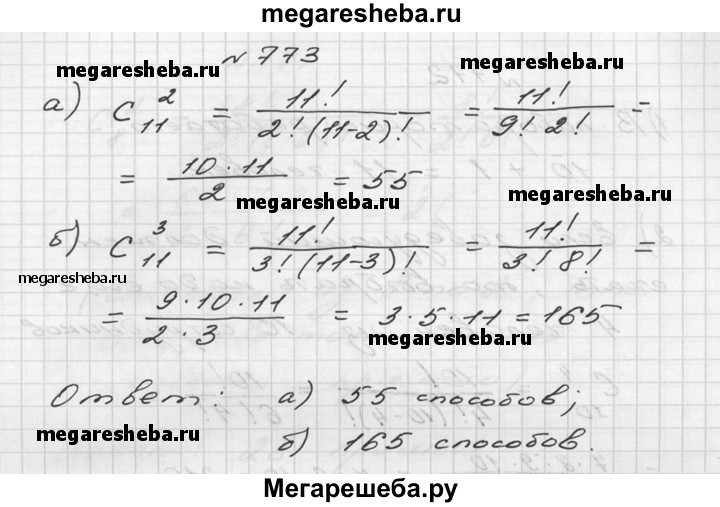 megaresheba.ru
№ 773
megaresheba.ru
а) C₁₁² = 11! / 2!(11-2)! = 11! / 9! 2! =
= 10·11 / 2 = 55
megaresheba.ru megaresheba.ru
б) C₁₁³ = 11! / 3!(11-3)! = 11! / 3! 8! =
megaresheba.ru
= 9·10·11 / 2·3 = 3·5·11 = 165
megaresheba.ru
Ответ: а) 55 способов;
megaresheba.ru б) 165 способов.
Мегарешеба.ру